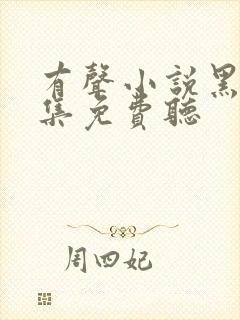 有聲小說黑
集免費聽
周四妃